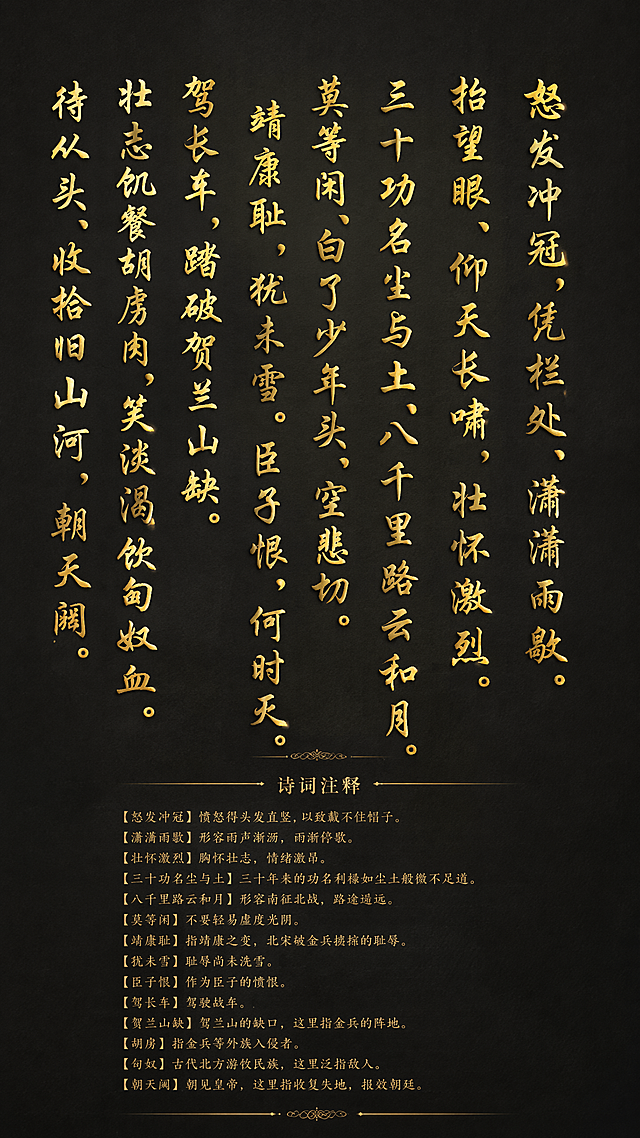 怒发冲冠，凭栏处、潇潇雨歇。
抬望眼、仰天长啸，壮怀激烈。
三十功名尘与土、八千里路云和月。
莫等闲、白了少年头、空悲切。
靖康耻，犹未雪。臣子恨，何时灭。
驾长车，踏破贺兰山缺。
壮志饥餐胡虏肉，笑淡渴饮匈奴血。
待从头、收拾旧山河，朝天阙。
诗词注释
【怒发冲冠】愤怒得头发直竖，以致戴不住帽子。
【潇潇雨歌】形容雨声渐沥，雨渐停歌。
【壮怀激烈】胸怀壮志，情绪激昂。
【三十功名尘与土】三十年来的功名利禄如尘土般微不足道。
【八千里路云和月】形容南征北战，路途遥远。
【莫等闲】不要轻易虚度光阴。
【靖康耻】指靖康之变，北宋破金兵掳掠的耻辱。
【犹未雪】耻辱尚未洗雪。
【臣子恨】作为臣子的愤恨。
【驾长车】驾驶战车。
【贺兰山缺】驾兰山的缺口，这里指金兵的阵地。
【胡房】指金兵等外族入侵者。
【句奴】古代北方游牧民族，这里泛指敌人。
【朝天阙】朝见皇帝，这里指收复失地，报效朝廷。